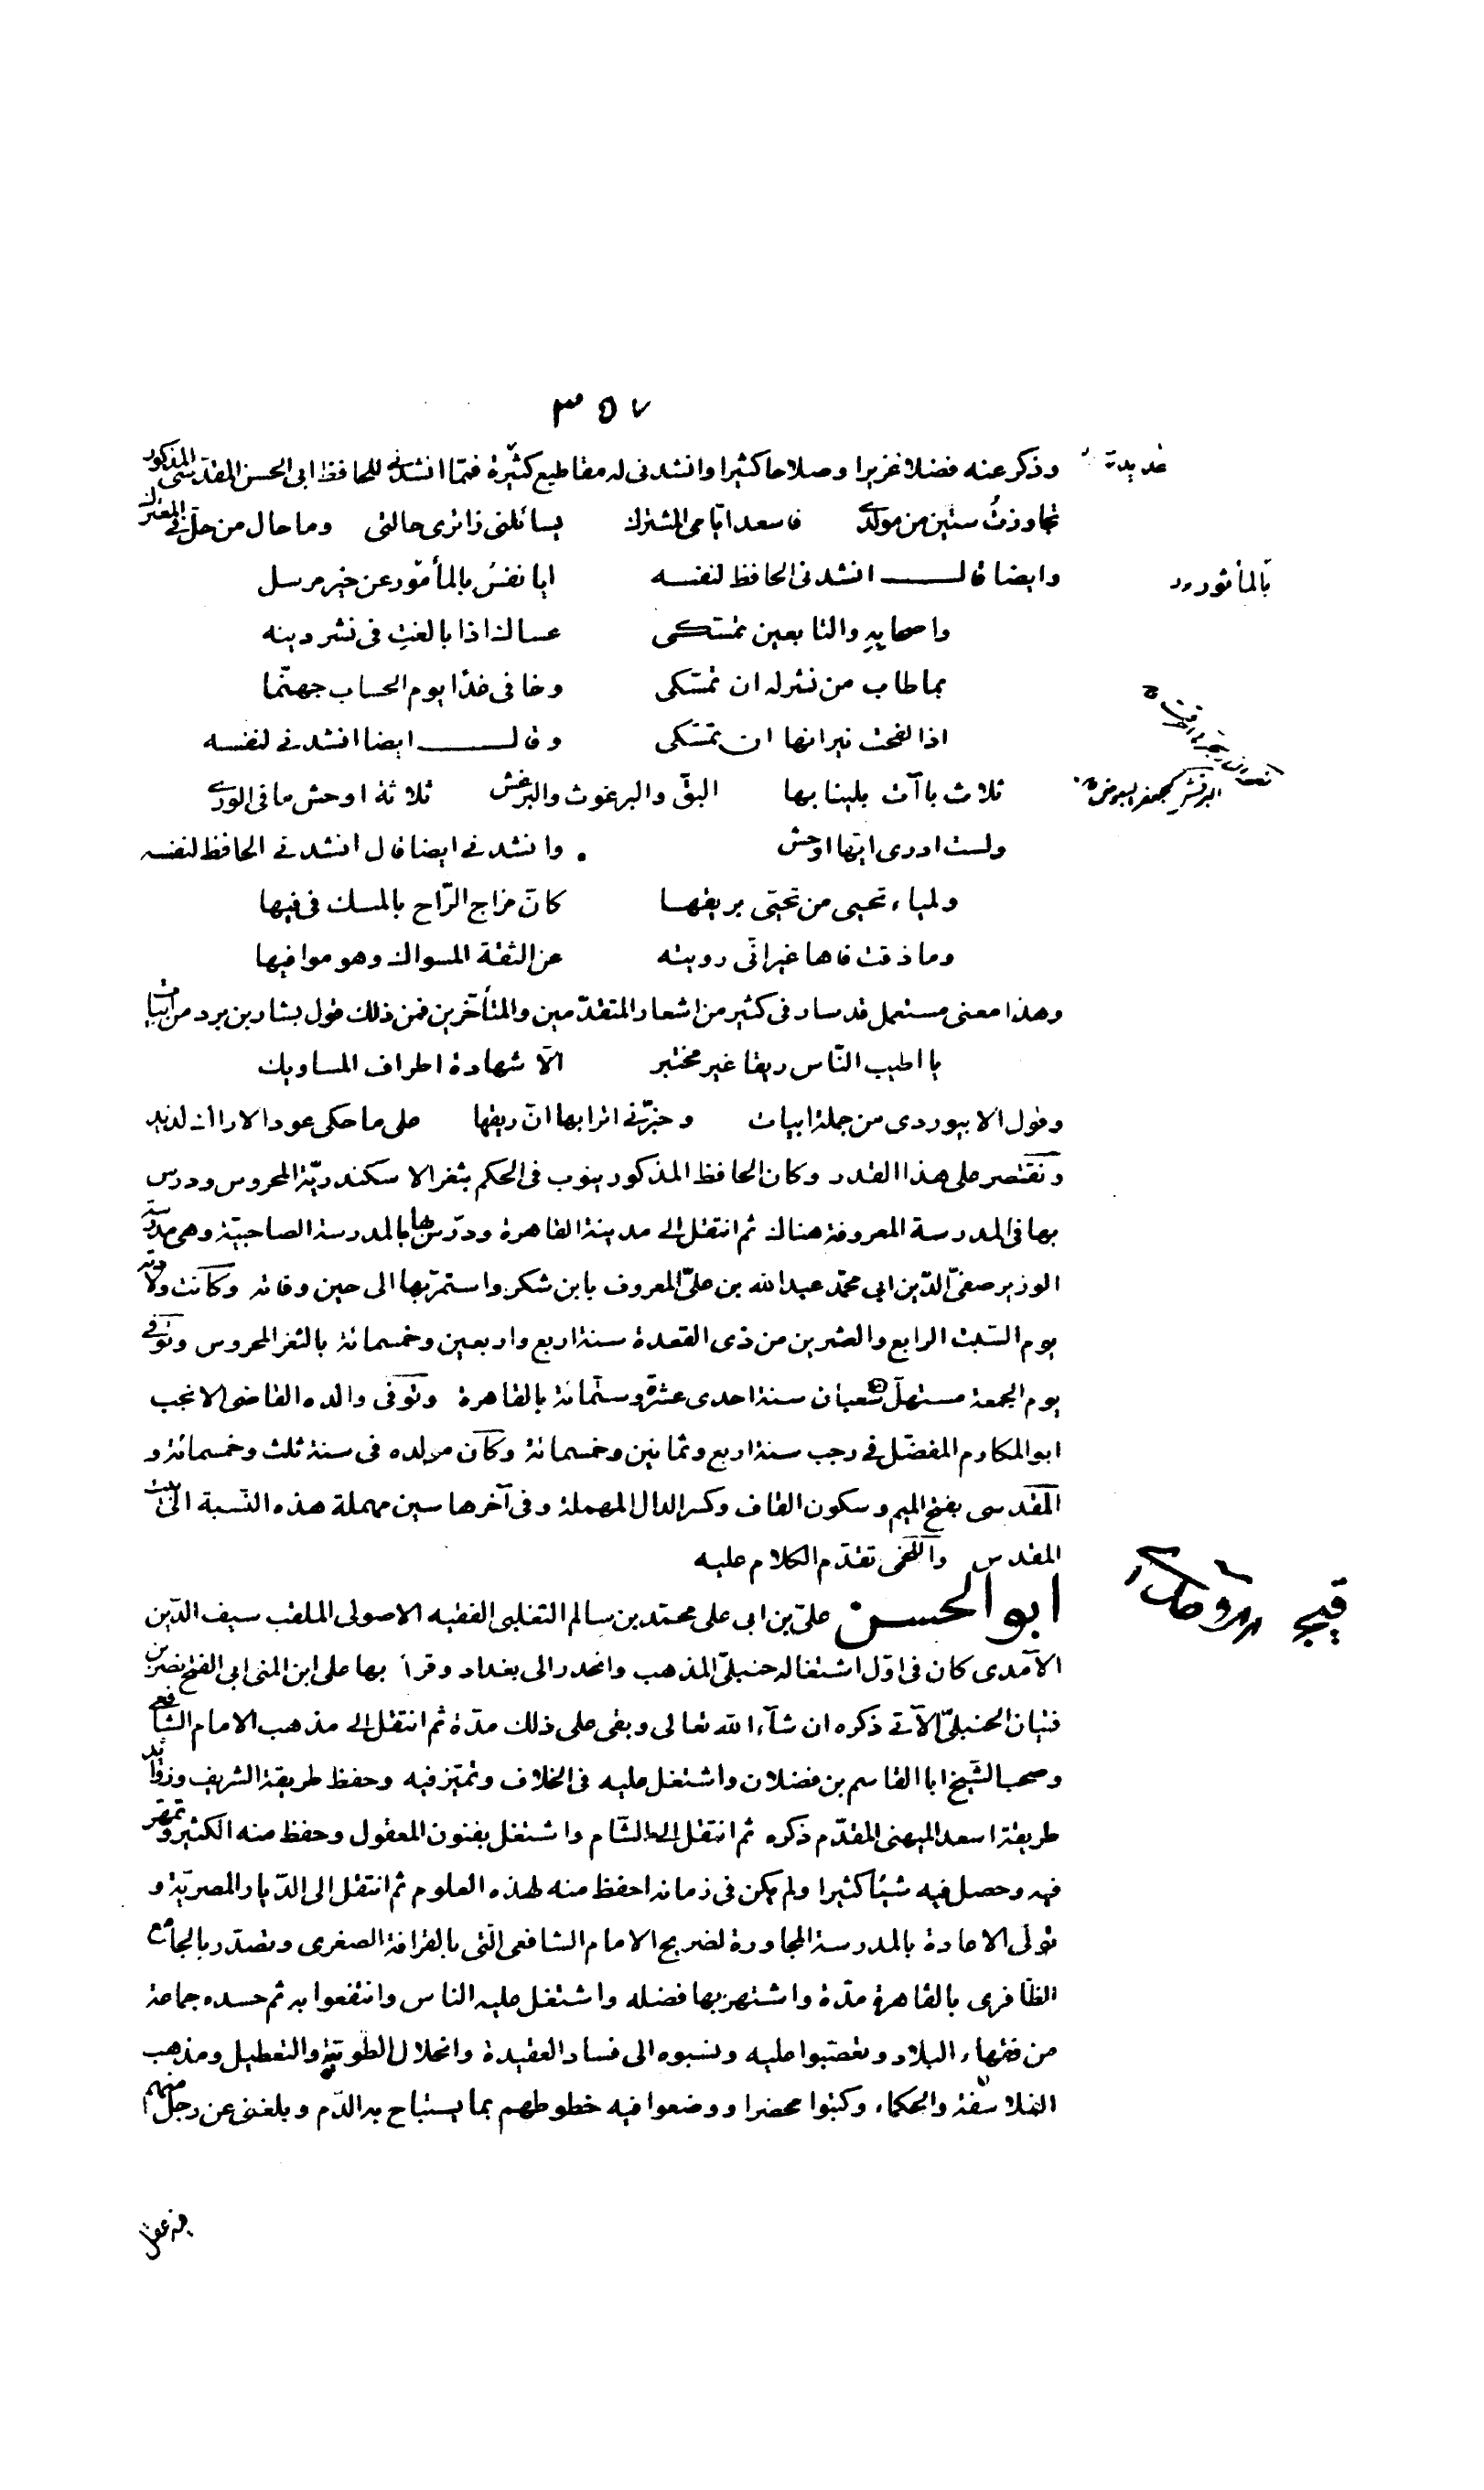 ٣٥٧
وذكر عنه فضلا غزيرا وصلاحا كثيرا وانشدنى له مقاطيع كثيرة فمما انشدنى للحافظ ابى الحسن المقدسى المذكور
عديدة
تجاوزتُ ستين من مولدى فاسعد ايّامى المشترك يسائلنى زائرى حالتى وما حال من حلّ فى المعترك
وايضا قال انشدنى الحافظ لنفسه ايا نفسُ بالمأثور عن خير مرسل
بالمأثور
واصحابهِ والتابعين تمسّكى عساك اذا بالغتِ فى نشر دينه
بما طاب من نشر له ان تمسّكى وخافى غدًا يوم الحساب جهنّما
اذا لفحت نيرانها ان تمسّكى وقال ايضا انشدنى لنفسه
ثلاث باآت بلينا بها البقّ والبرغوث والبرغش ثلاثة اوحش ما فى الورى
ولست ادرى ايّها اوحش وانشدنى ايضا قال انشدنى الحافظ لنفسه
ولمياء تحيى من تحيّى بريقها كانّ مزاج الرّاح بالمسك فى فيها
وما ذقت فاها غير انّى رويته عن الثقة المسواك وهو موافيها
وهذا معنى مستعمل قد سار فى كثير من اشعار المتقدّمين والمتأخّرين فمن ذلك قول بشار بن برد من ابيات
يا اطيب النّاس ريقا غير مختبر الّا شهادة اطراف المساويك
وقول الابيوردى من جملة ابيات وخبّرنى اترابها انّ ريقها على ما حكى عود الاراك لذيذ
ونقتصر على هذا القدر وكان الحافظ المذكور ينوب فى الحكم بثغر الاسكندريّة المحروس ودرس
بها فى المدرسة المعروفة هناك ثم انتقل الى مدينة القاهرة ودرّس بها بالمدرسة الصاحبيّة وهى مدرسة
الوزير صفىّ الدّين ابى محمّد عبد الله بن علىّ المعروف بابن شكر واستمرّ بها الى حين وفاته وكانت ولادته
يوم السّبت الرابع والعشرين من ذى القعدة سنة اربع واربعين وخمسمائة بالثغر المحروس وتوفى
يوم الجمعة مستهلّ شعبان سنة احدى عشرة وستّمائة بالقاهرة وتوفى والده القاضى الانجب
ابو المكارم المفضّل فى رجب سنة اربع وثمانين وخمسمائة وكان مولده فى سنة ثلث وخمسمائة و
المقدسى بفتح الميم وسكون القاف وكسر الدال المهملة وفى آخرها سين مهملة هذه النّسبة الى بيت
المقدس واللخمى تقدّم الكلام عليه
ابو الحسن علىّ بن ابى على محمّد بن سالم التغلبى الفقيه الاصولى الملقب سيف الدّين
الآمدى كان فى اوّل اشتغاله حنبلىّ المذهب وانحدر الى بغداد وقرأ بها على ابن المنى ابى الفتح نصر بن
فتيان الحنبلىّ الآتى ذكره ان شآء الله تعالى وبقى على ذلك مدّة ثم انتقل الى مذهب الامام الشافعى
وصحب الشّيخ ابا القاسم بن فضلان واشتغل عليه فى الخلاف وتميّز فيه وحفظ طريقة الشريف وزوائد
طريقة اسعد الميهنى المقدّم ذكره ثم انتقل الى الشّام واشتغل بفنون المعقول وحفظ منه الكثير وتمهّر
فيه وحصل فيه شيئا كثيرا ولم يكن فى زمانه احفظ منه لهذه العلوم ثم انتقل الى الدّيار المصريّة و
تولّى الاعادة بالمدرسة المجاورة لضريح الامام الشافعى الّتى بالقرافة الصغرى وتصدّر بالجامع
الظّافرى بالقاهرة مدّة واشتهر بها فضله واشتغل عليه الناس وانتفعوا به ثم حسده جماعة
من فقهاء البلاد وتعصّبوا عليه ونسبوه الى فساد العقيدة وانحلال الطّويّة والتعطيل ومذهب
الفلاسفة والحكماء وكتبوا محضرا ووضعوا فيه خطوطهم بما يستباح به الدّم وبلغنى عن رجل منهم
فيه عقل